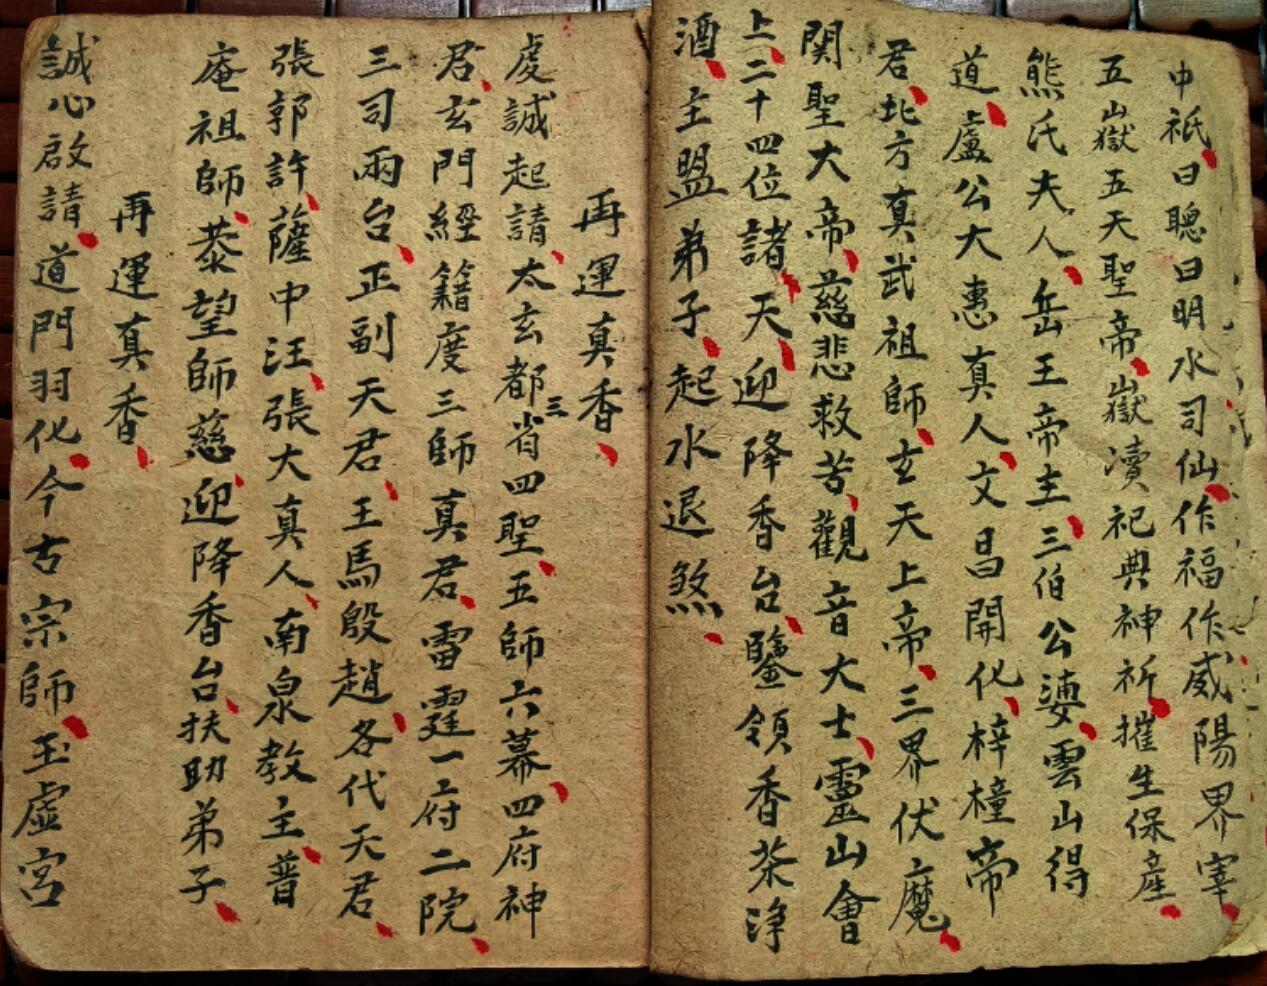 中祇曰聰曰明水司仙作福作威陽界宰
五嶽五天聖帝嶽瀆祀典神祈摧生保產
熊氏夫人岳王帝主三伯公婆雲山得
道盧公大惠真人文昌開化梓橦帝
君北方真武祖師玄天上帝三界伏魔
関聖大帝慈悲救苦觀音大士靈山會
上二十四位諸天迎降香台鑒領香茶淨
酒主盟弟子起水退煞
再運真香
虔誠起請太玄都三省四聖五師六幕四府神
君玄門經籍度三師真君雷霆一府二院
三司兩台正副天君王馬殷趙各代天君
張郭許薩中汪張大真人南泉教主普
庵祖師恭望師慈迎降香台扶助弟子
再運真香
誠心啟請道門羽化今古宗師玉虛宮